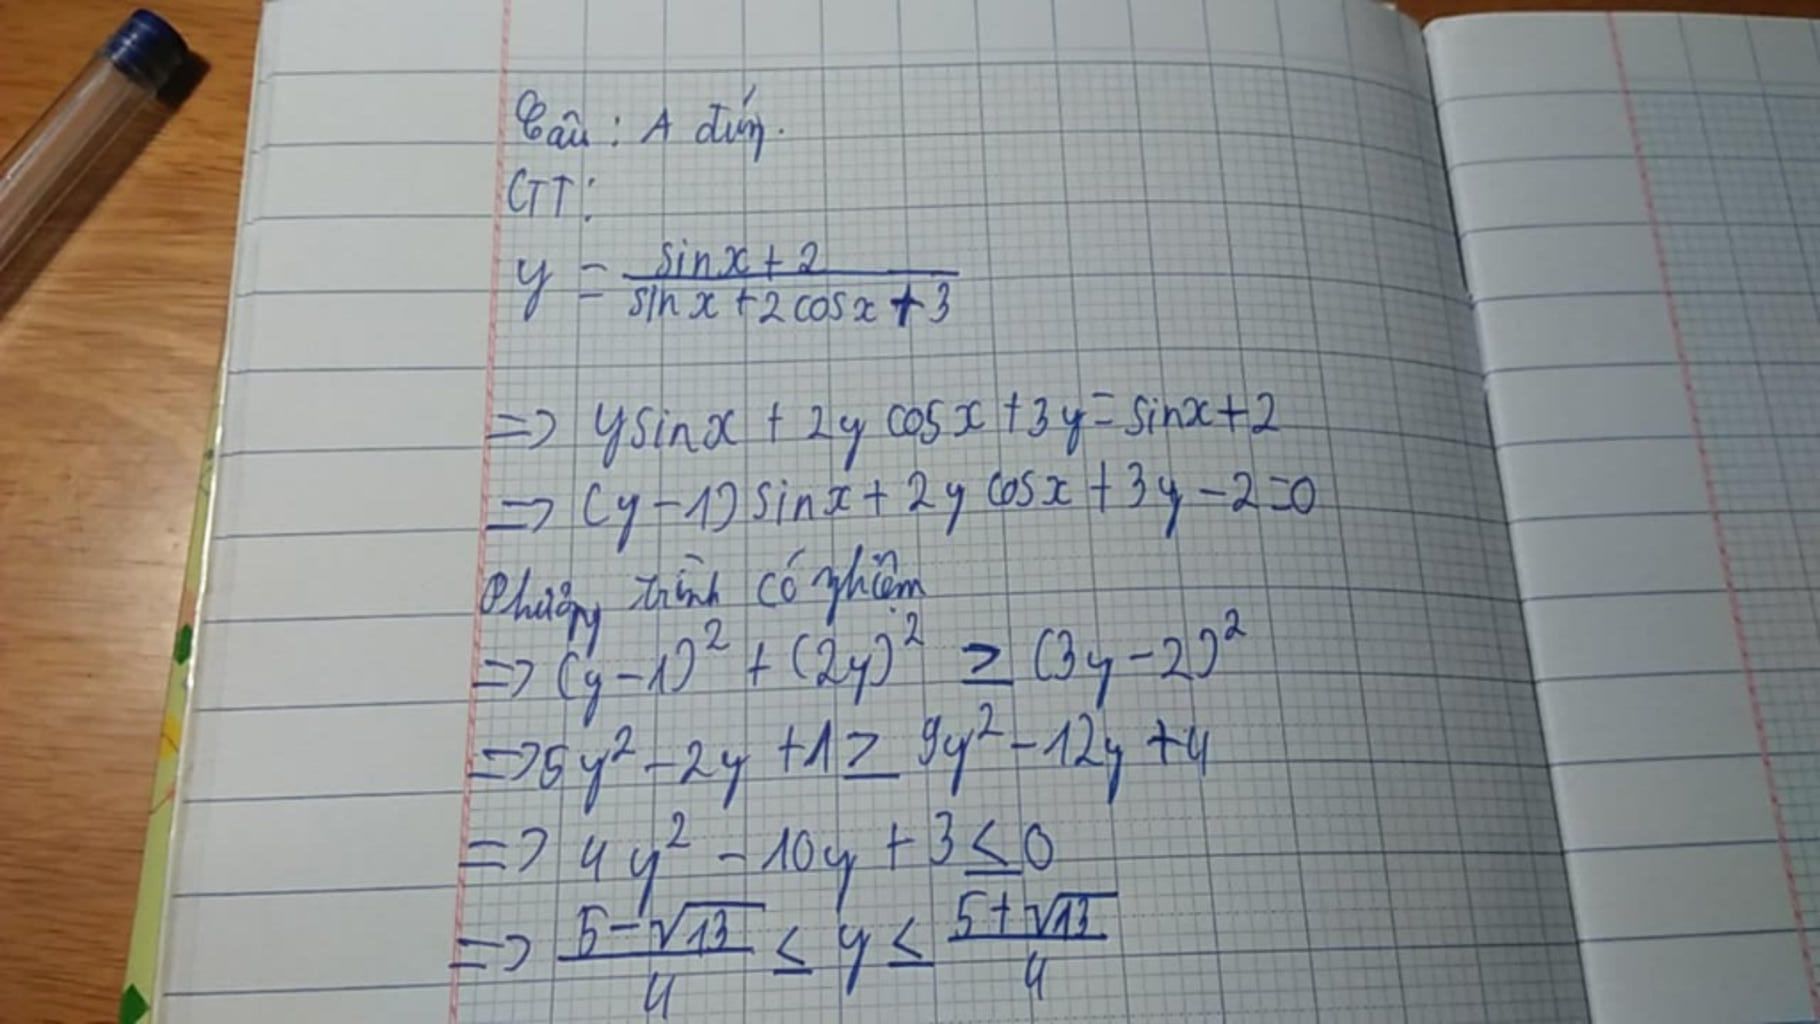 Câu : A đúng.
CTT :
y = \frac{sin x + 2}{sin x + 2 cos x + 3}
=> y sin x + 2y cos x + 3y = sin x + 2
=> (y - 1) sin x + 2y cos x + 3y - 2 = 0
Phương trình có nghiệm
=> (y - 1)² + (2y)² ≥ (3y - 2)²
=> 5y² - 2y + 1 ≥ 9y² - 12y + 4
=> 4y² - 10y + 3 ≤ 0
=> \frac{5 - √13}{4} ≤ y ≤ \frac{5 + √13}{4}